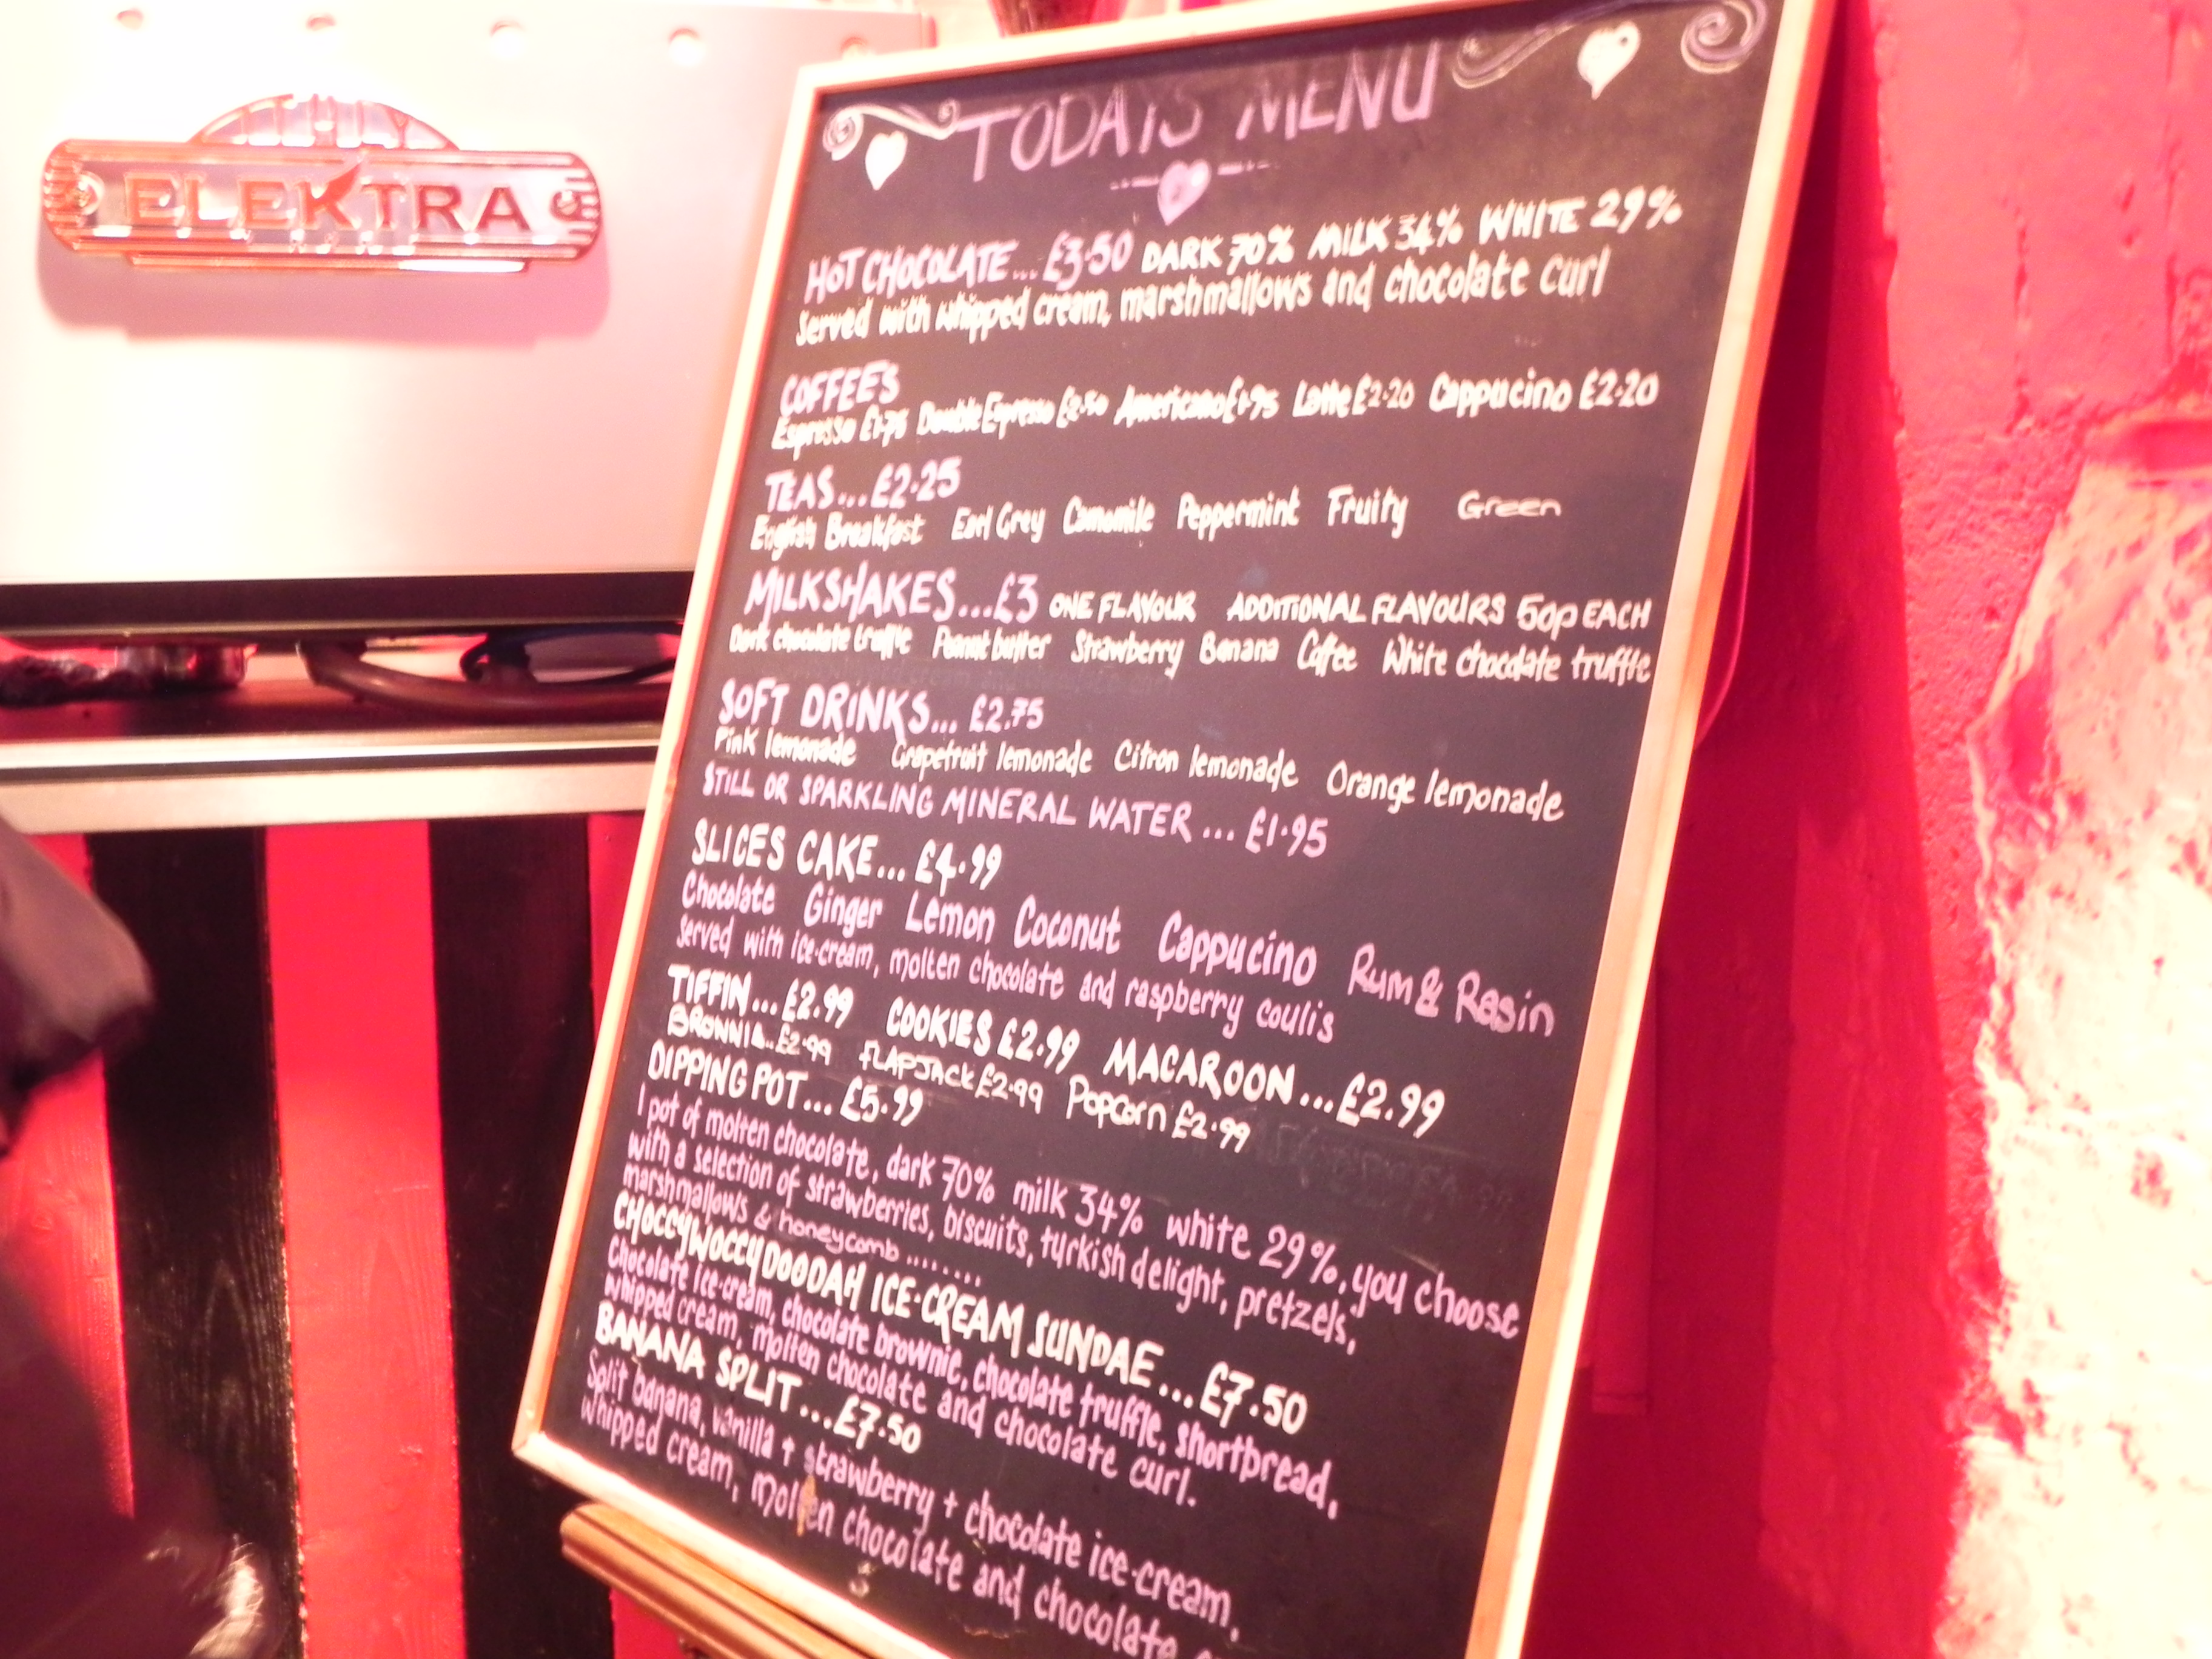 ELEKTRA
TODAYS MENU
HOT CHOCOLATE... £3.50 DARK 70% MILK 34% WHITE 29%
Served with whipped cream, marshmallows and chocolate curl
COFFEES
Espresso £1.75 Double Espresso £2.50 Americano £1.95 Latte £2.20 Cappucino £2.20
TEAS... £2.25
English Breakfast Earl Grey Camomile Peppermint Fruity Green
MILKSHAKES... £3 ONE FLAVOUR ADDITIONAL FLAVOURS 50p EACH
Dark chocolate truffle Peanut butter Strawberry Banana Coffee White chocolate truffle
SOFT DRINKS... £2.75
Pink lemonade Grapefruit lemonade Citron lemonade Orange lemonade
STILL OR SPARKLING MINERAL WATER... £1.95
SLICES CAKE... £4.99
Chocolate Ginger Lemon Coconut Cappucino Rum & Rasin
Served with ice-cream, molten chocolate and raspberry coulis
TIFFIN... £2.99 COOKIES £2.99 MACAROON... £2.99
BROWNIE.. £2.99 FLAPJACK £2.99 Popcorn £2.99
DIPPING POT... £5.99
1 pot of molten chocolate, dark 70% milk 34% white 29%, you choose
with a selection of strawberries, biscuits, turkish delight, pretzels,
marshmallows & honeycomb ........
CHOCCYWOCCYDOODAH ICE-CREAM SUNDAE... £7.50
Chocolate ice-cream, chocolate brownie, chocolate truffle, shortbread,
whipped cream, molten chocolate and chocolate curl.
BANANA SPLIT... £7.50
Split banana, vanilla + strawberry + chocolate ice-cream,
whipped cream, molten chocolate and chocolate